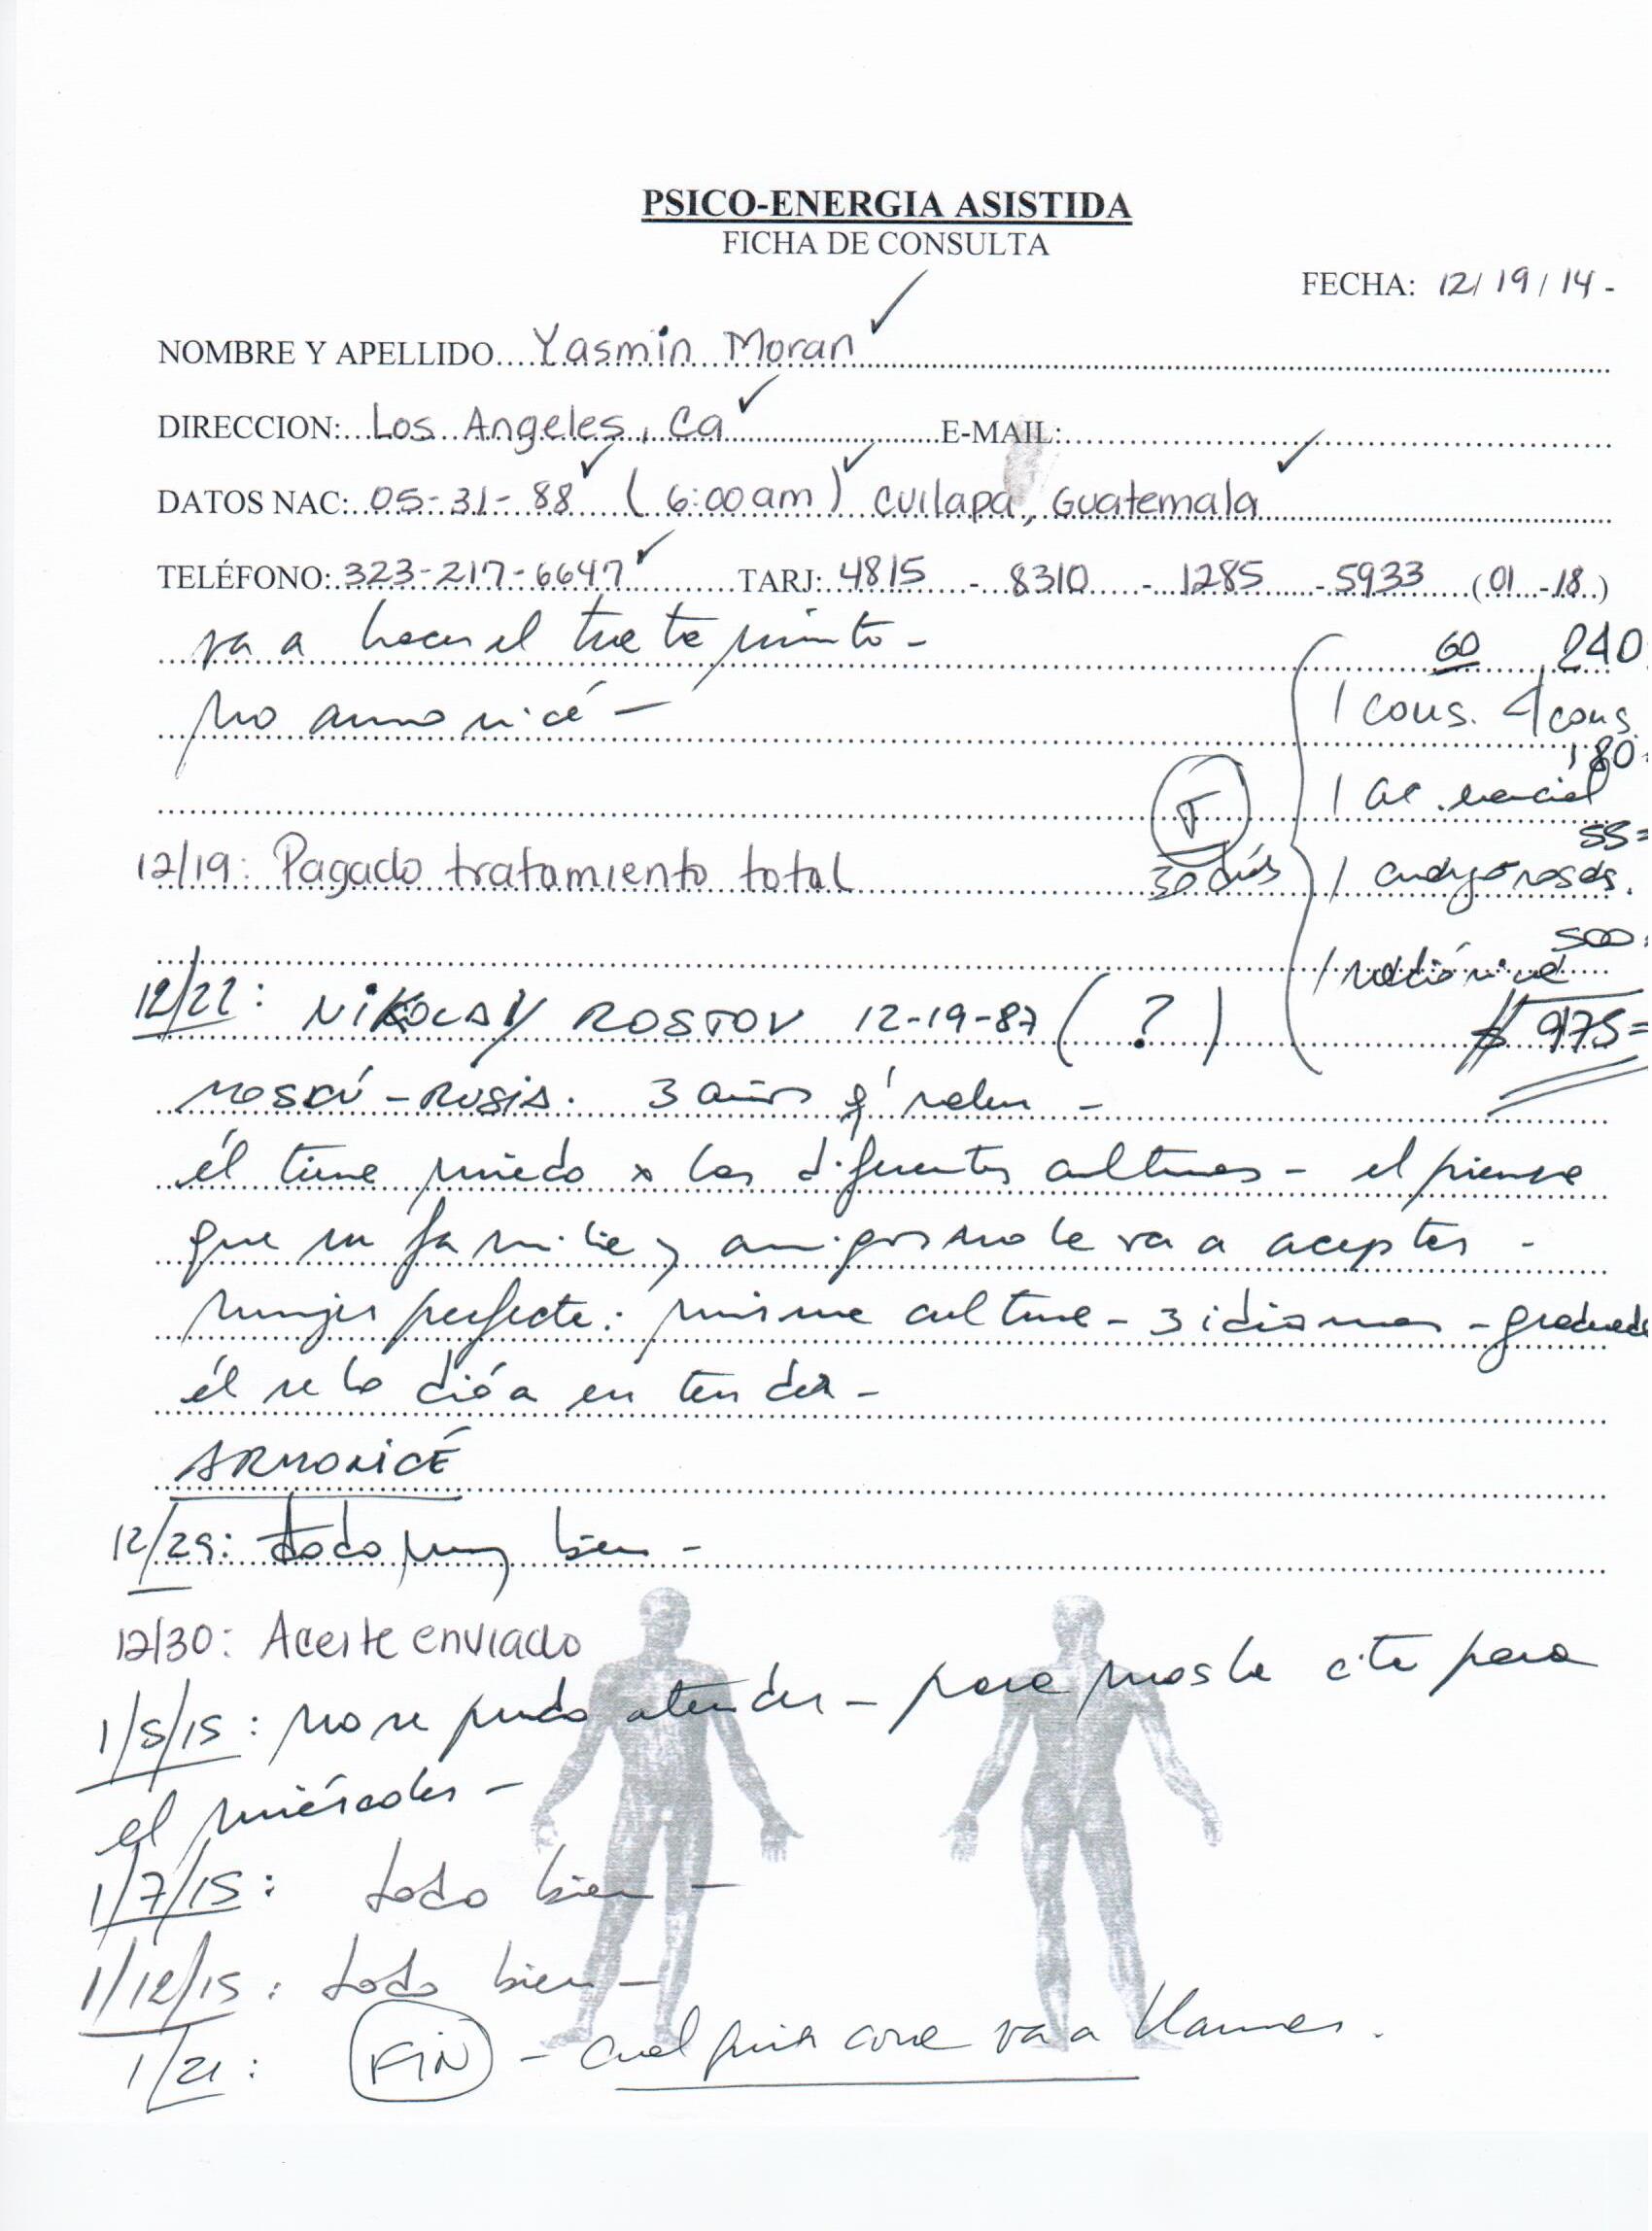 PSICO-ENERGIA ASISTIDA
FICHA DE CONSULTA
FECHA: 12/19/14-
NOMBRE Y APELLIDO Yasmin Moran
DIRECCION: Los Angeles, Ca E-MAIL:
DATOS NAC: 05-31-88 (6:00am) Cuilapa, Guatemala
TELÉFONO: 323-217-6647 TARJ: 4815 - 8310 - 1285 - 5933 (01-18)
va a hacer el tratamiento -
60 240
no armonicé -
1 cons. 4 cons.
180
1 ac. esencial
T
55=
12/19: Pagado tratamiento total
30 días
1 rosas.
500
1 radiónica
12/22: NIKOLAY ROSTOV 12-19-87 (?)
$ 975=
MOSCÚ - RUSIA. 3 años q' salen -
él tiene miedo x las diferentes culturas - el piensa
que su familia y amigos no le va a aceptar -
mujer perfecta: misma cultura - 3 idiomas - graduada
él se lo dió a entender -
ARMONICÉ
12/29: todo muy bien -
12/30: Aceite enviado
1/5/15: no se pudo atender - para cita para
el miércoles -
1/7/15: todo bien -
1/12/15: todo bien -
1/21: FIN - cualquier cosa va a llamar.